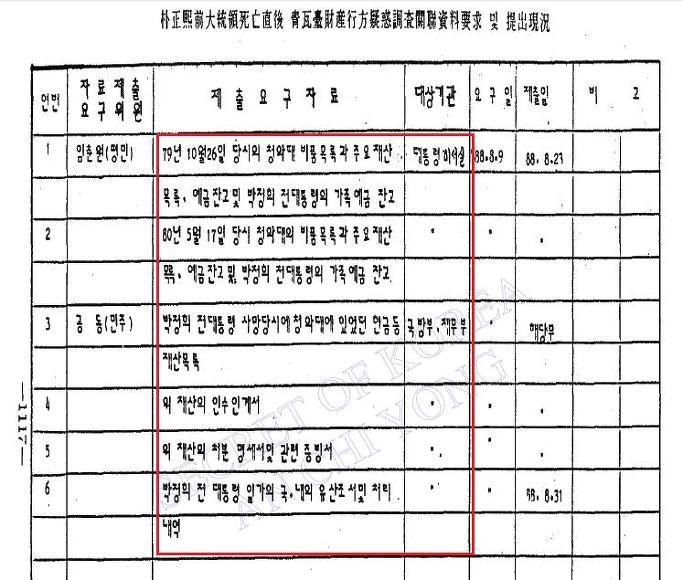 朴正熙前大統領死亡直後 靑瓦臺財産行方疑惑調査關聯資料要求 및 提出現況
연번 자료제출요구위원 제출요구자료 대상기관 요구일 제출일 비고
1 임춘원(평민) 79년 10월26일 당시의 청와대 비품목록과 주요재산 대통령비서실 88.8.9 88.8.23
목록, 예금잔고및 박정희 전대통령의 가족예금 잔고
2 80년 5월 17일 당시 청와대의 비품목록과 주요재산 " " "
목록, 예금잔고및 박정희 전대통령의 가족예금 잔고
3 공동(민주) 박정희 전대통령 사망당시에 청와대에 있었던 현금등 국방부, 재무부 " 해당무
재산목록
4 위 재산의 인수인계서 " " "
5 위 재산의 처분 명세서및 관련 증빙서 " " "
6 박정희 전 대통령 일가의 국,내외 유산조서및 처리 " " 88.8.31
내역
—1117—
SECRET OF KOREA
AN CHI YONG